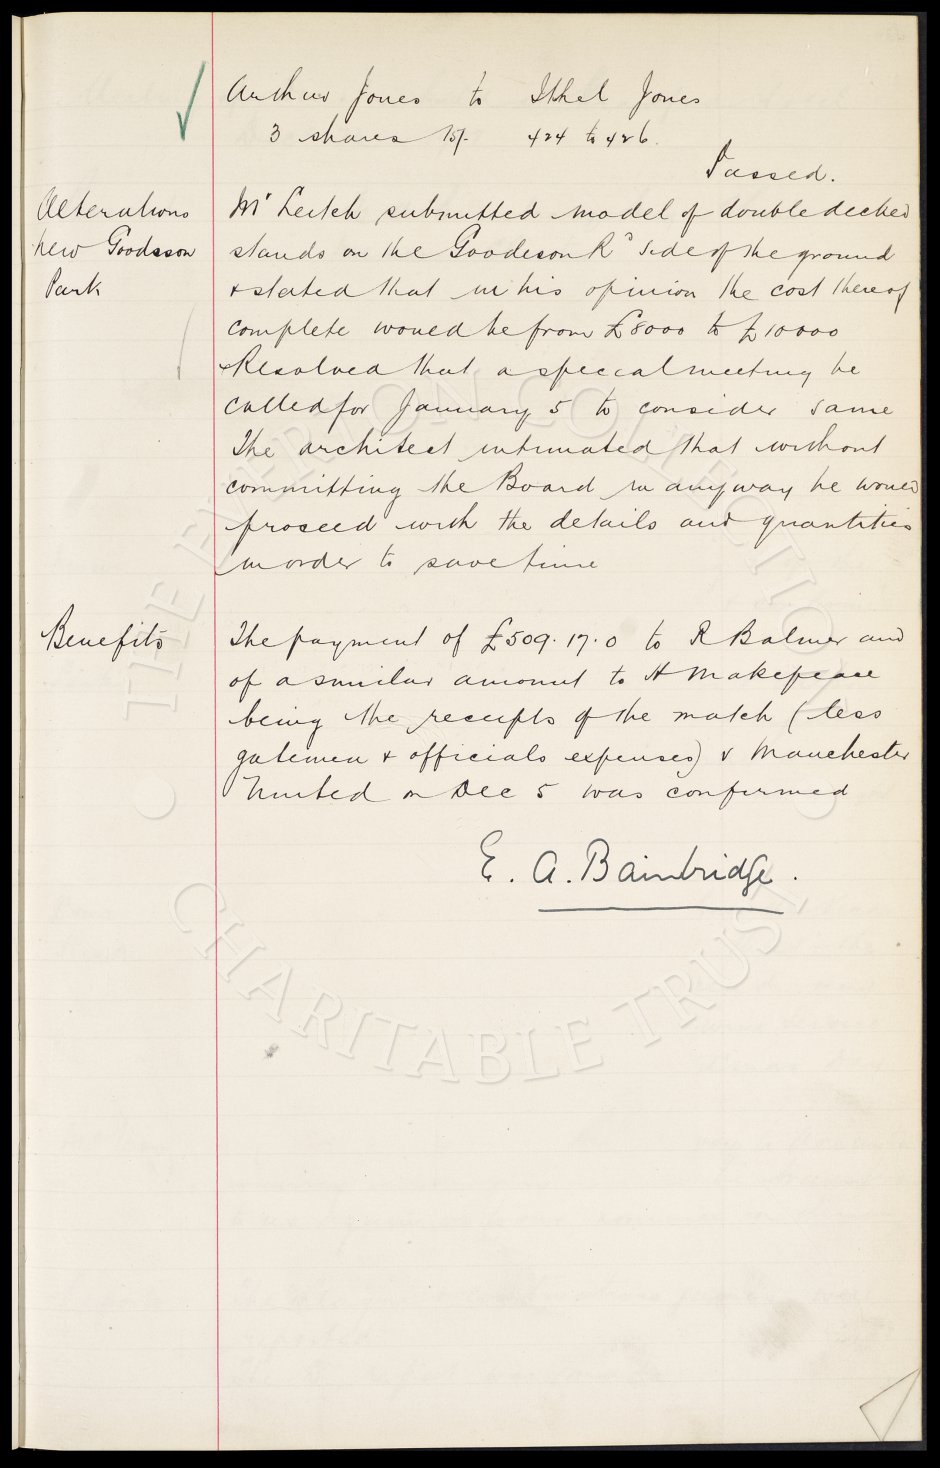 Arthur Jones to Ithel Jones
3 shares 15/- 424 to 426.
Passed.
Alterations
new Goodison
Park
Mr Leitch submitted model of double decked
stands on the Goodison Rd side of the ground
& stated that in his opinion the cost thereof
complete would be from £8000 to £10000
Resolved that a special meeting be
called for January 5 to consider same
The architect intimated that without
committing the Board in anyway he would
proceed with the details and quantities
in order to save time
Benefits
The payment of £509.17.0 to R Balmer and
of a similar amount to H Makepeace
being the receipts of the match (less
gatemen & officials expenses) v Manchester
United on Dec 5 was confirmed
E. A. Bainbridge.
THE EVERTON COLLECTION
CHARITABLE TRUST